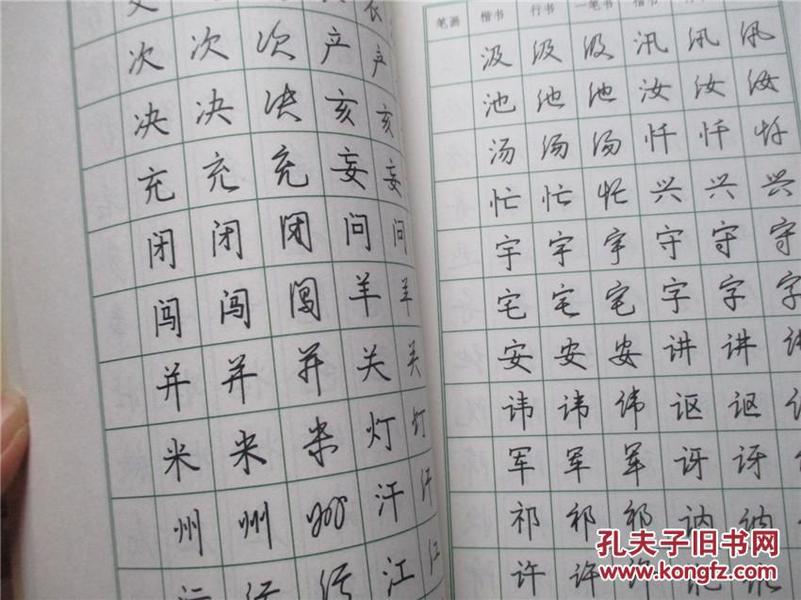 次 次 次 产 产
决 决 决 亥 亥
充 充 充 妄 妄
闭 闭 闭 问 问
闯 闯 闯 羊 羊
并 并 并 关 关
米 米 米 灯 灯
州 州 州 汗 汗
江 江
笔画 楷书 行书 一笔书 楷书
汲 汲 汲 汛 汛 汛
池 池 池 汝 汝 汝
汤 汤 汤 忏 忏 忏
忙 忙 忙 兴 兴 兴
宇 宇 宇 守 守 守
宅 宅 宅 字 字 字
安 安 安 讲 讲
讳 讳 讳 讴 讴
军 军 军 讶 讶
祁 祁 祁 讷 讷
许 许 许
孔夫子旧书网
www.kongfz.com